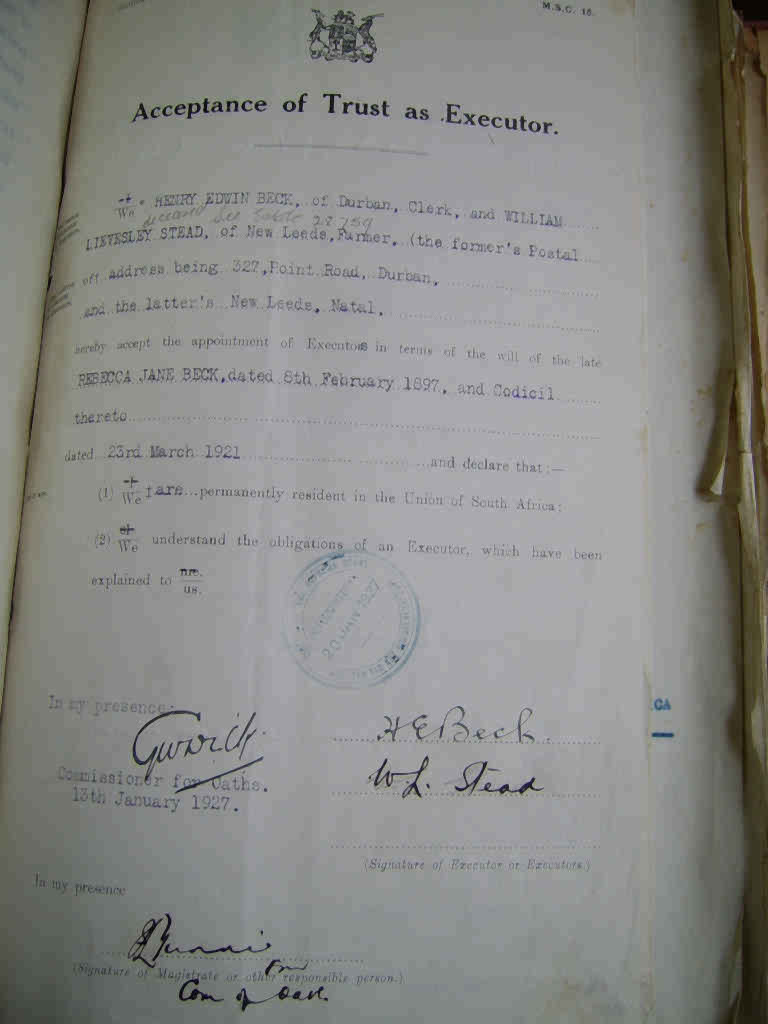 M.S.C. 15.
Acceptance of Trust as Executor.
I
We HENRY EDWIN BECK, of Durban, Clerk, and WILLIAM
deceased see Estate 28759
LIEVESLEY STEAD, of New Leeds, Farmer, (the former's Postal
of address being 327, Point Road, Durban,
and the latter's New Leeds, Natal,
hereby accept the appointment of Executors in terms of the will of the late
REBECCA JANE BECK, dated 8th February 1897, and Codicil
thereto
dated 23rd March 1921 and declare that:—
(1) I
We are permanently resident in the Union of South Africa;
(2) I
We understand the obligations of an Executor, which have been
explained to me.
us.
20 JAN 1927
In my presence:
H E Beck.
Commissioner for Oaths.
W L. Stead
13th January 1927.
CA
(Signature of Executor or Executors.)
In my presence
(Signature of Magistrate or other responsible person.)
Com of Oath.